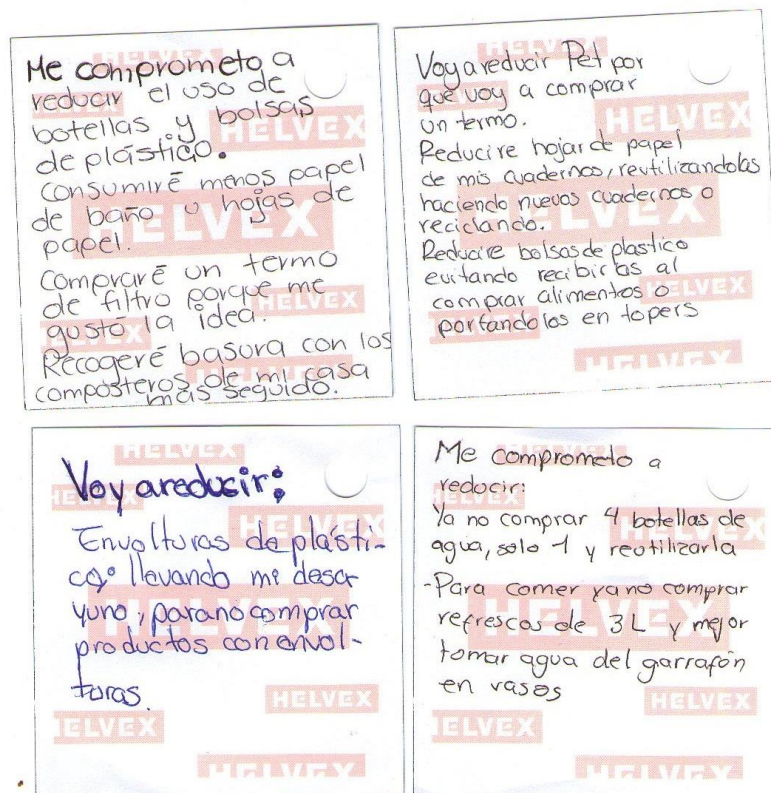 Me comprometo a
reducir el uso de
botellas y bolsas
de plástico.
Consumiré menos papel
de baño u hojas de
papel.
Compraré un termo
de filtro porque me
gustó la idea.
Recogeré basura con los
composteros de mi casa
más seguido.
Voy a reducir Pet por
que voy a comprar
un termo.
Reducire hojas de papel
de mis cuadernos, reutilizandolas
haciendo nuevos cuadernos o
reciclando.
Reducire bolsas de plastico
evitando recibirlas al
comprar alimentos o
portandolos en topers
Voy a reducir:
Envolturas de plásti-
co: llevando mi desa
yuno, para no comprar
productos con envol-
turas.
Me comprometo a
reducir:
Ya no comprar 4 botellas de
agua, solo 1 y reutilizarla
-Para comer ya no comprar
refrescos de 3 L y mejor
tomar agua del garrafón
en vasos
HELVEX